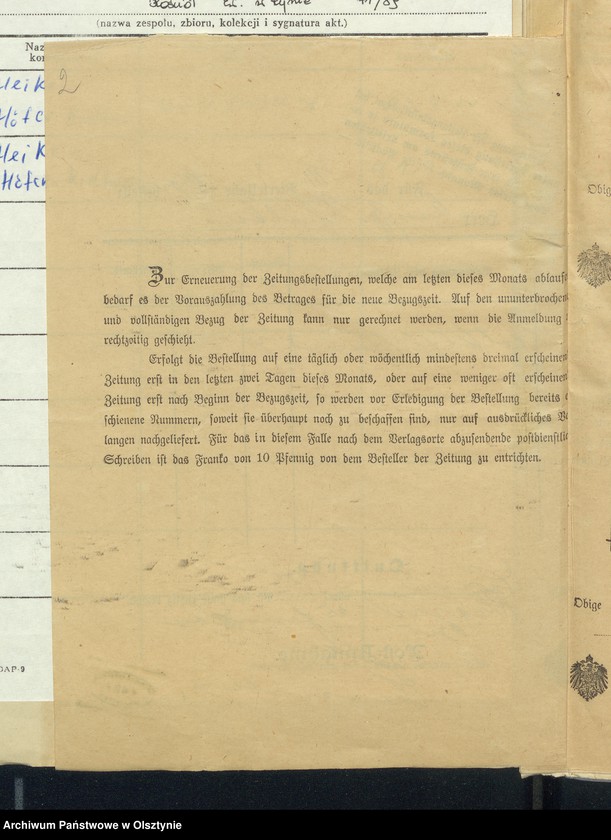 (nazwa zespołu, zbioru, kolekcji i sygnatura akt.)
2
Zur Erneuerung der Zeitungsbestellungen, welche am letzten dieses Monats ablaufe
bedarf es der Vorauszahlung des Betrages für die neue Bezugszeit. Auf den ununterbrochen
und vollständigen Bezug der Zeitung kann nur gerechnet werden, wenn die Anmeldung
rechtzeitig geschieht.
Erfolgt die Bestellung auf eine täglich oder wöchentlich mindestens dreimal erscheinen
Zeitung erst in den letzten zwei Tagen dieses Monats, oder auf eine weniger oft erscheinen
Zeitung erst nach Beginn der Bezugszeit, so werden vor Erledigung der Bestellung bereits e
schienene Nummern, soweit sie überhaupt noch zu beschaffen sind, nur auf ausdrückliches Ve
langen nachgeliefert. Für das in diesem Falle nach dem Verlagsorte abzusendende postdienstlic
Schreiben ist das Franko von 10 Pfennig von dem Besteller der Zeitung zu entrichten.
Obige
Archiwum Państwowe w Olsztynie